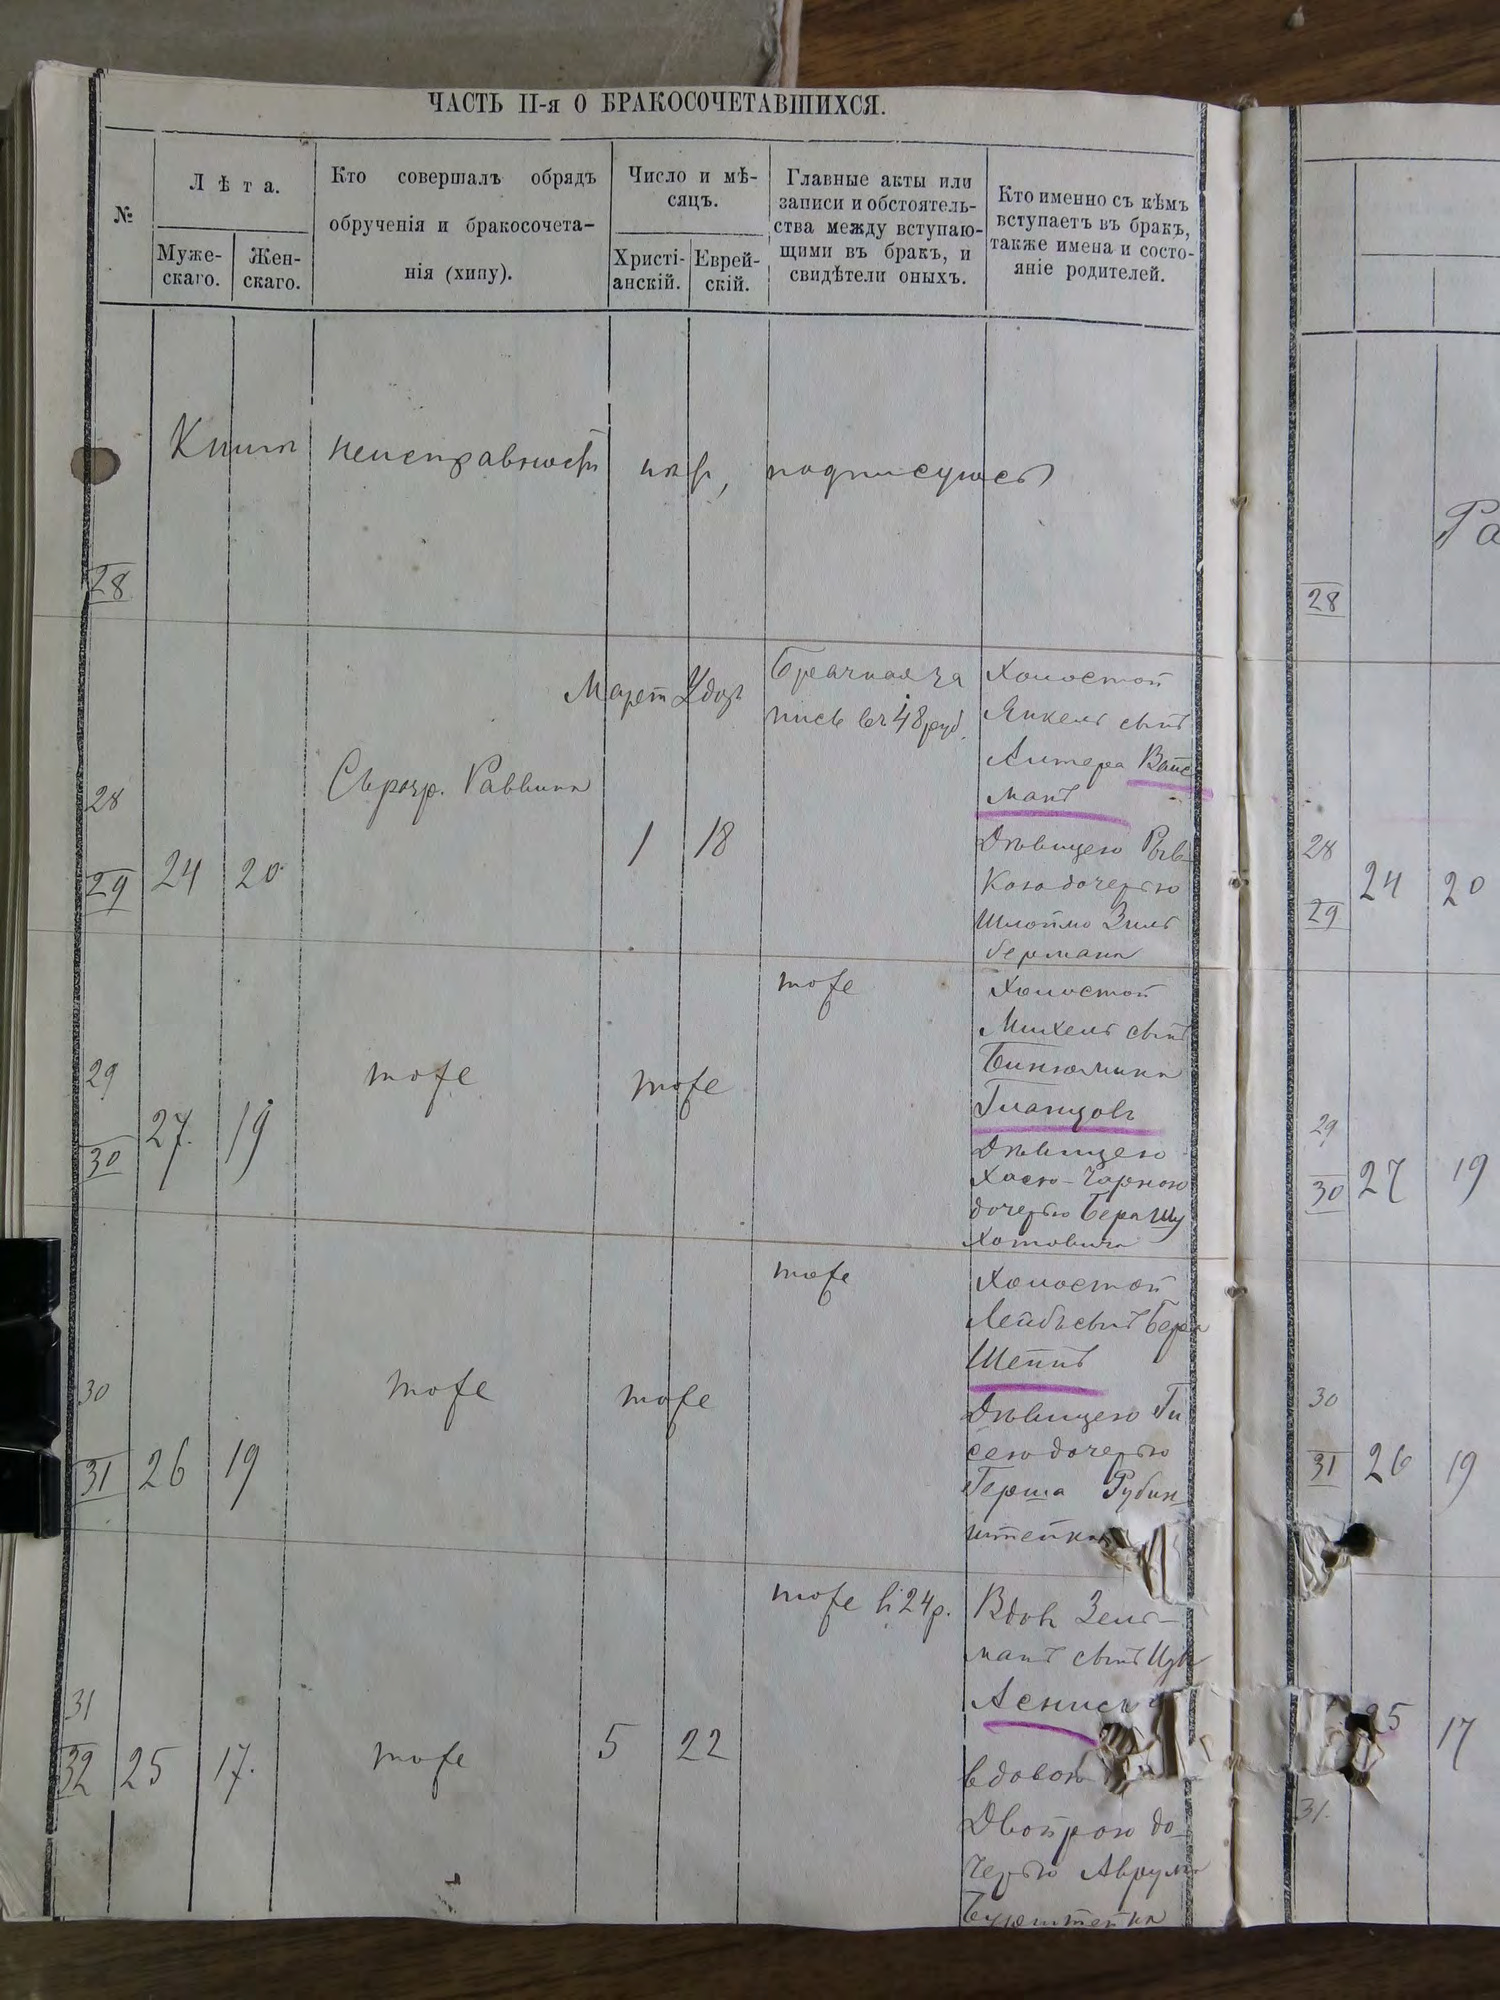 ЧАСТЬ II-я О БРАКОСОЧЕТАВШИХСЯ.
№
Лѣта.
Муже-
скаго.
Жен-
скаго.
Кто совершалъ обрядъ
обрученія и бракосочета-
нія (хипу).
Число и мѣ-
сяцъ.
Христі-
анскій.
Еврей-
скій.
Главные акты или
записи и обстоятель-
ства между вступаю-
щими въ бракъ, и
свидѣтели оныхъ.
Кто именно съ кѣмъ
вступаетъ въ бракъ,
также имена и состо-
яніе родителей.
28
28
29
24
20
Раввина
Мартъ
1
18
Брачная за
пись въ 48 руб.
Холостой
Янкель сынъ
Алтера Вайс
манъ
Дѣвицею Рыв
кою дочерью
Шлоймо Зиль
бермана
29
30
27.
19
тоже
тоже
тоже
Холостой
Михель сынъ
Бинюмина
Гланцовъ
Дѣвицею
Хасю-Чарною
дочерью Бера Шу
хатовича
30
31
26
19
тоже
тоже
тоже
Холостой
Лейбъ сынъ Бера
Шейнъ
Дѣвицею Ги
сею дочерью
Герша Рубин
штейна
31
32
25
17.
тоже
5
22
тоже въ 24 р.
Вдов. Зель-
манъ сынъ
вдовою
Двойрою до-
черью Аврума
28
Ра
28
29
24
20
29
30
27
19
30
31
26
19
25
17
31.